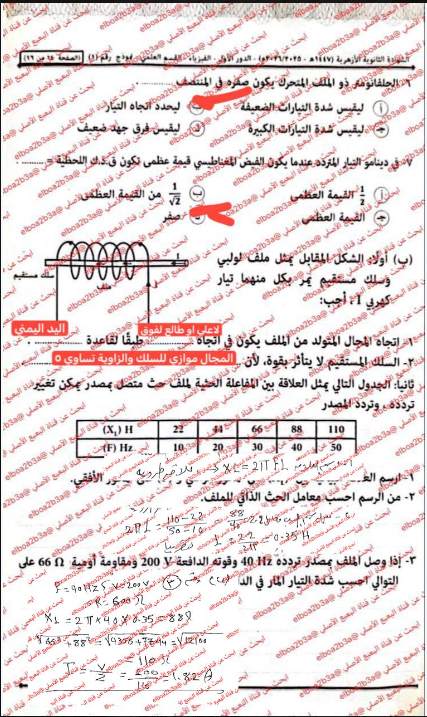 الشهادة الثانوية الأزهرية (١٤٤٧هـ - ٢٠٢٦/٢٠٢٥م) - الدور الأول - الفيزياء - القسم العلمي - نموذج رقم (١) (الصفحة ١٥ من ١٦)
٦- الجلفانومتر ذو الملف المتحرك يكون صفره في المنتصف
أ ليقيس شدة التيارات الضعيفة ب ليحدد اتجاه التيار
جـ ليقيس شدة التيارات الكبيرة د ليقيس فرق جهد ضعيف
٧- في دينامو التيار المتردد عندما يكون الفيض المغناطيسي قيمة عظمى تكون ق.د.ك اللحظية =
أ 1/2 القيمة العظمى ب 1/√2 من القيمة العظمى
جـ القيمة العظمى د صفر
(ب) أولًا: الشكل المقابل يمثل ملف لولبي
وسلك مستقيم يمر بكل منهما تيار
كهربي I ، أجب:
سلك مستقيم
ملف
I
I
١- اتجاه المجال المتولد من الملف يكون في اتجاه لاعلي او طالع لفوق طبقًا لقاعدة اليد اليمني
٢- السلك المستقيم لا يتأثر بقوة، لأن المجال موازي للسلك والزاوية تساوي ٥
ثانيا: الجدول التالي يمثل العلاقة بين المفاعلة الحثية لملف حث متصل بمصدر يمكن تغيير
تردده، وتردد المصدر
(X_L) H 22 44 66 88 110
(F) Hz 10 20 30 40 50
X_L = 2πFL
١- ارسم
الأفقي.
٢- من الرسم احسب معامل الحث الذاتي للملف.
2πL = 110-22/50-10 = 88/40 = 2.2
L = 2.2/2π = 0.35 H
٣- إذا وصل الملف بمصدر تردده 40 Hz وقوته الدافعة 200 V ومقاومة أومية 66 Ω على
التوالي احسب شدة التيار المار في
F = 40HZ V = 200V
X_L = 2π×40×0.35 = 88Ω
= 110 Ω
I = V/Z = 200/110 = 1.82 A
ابحث عن قناة البعبع الأصلي @elboa2b3a